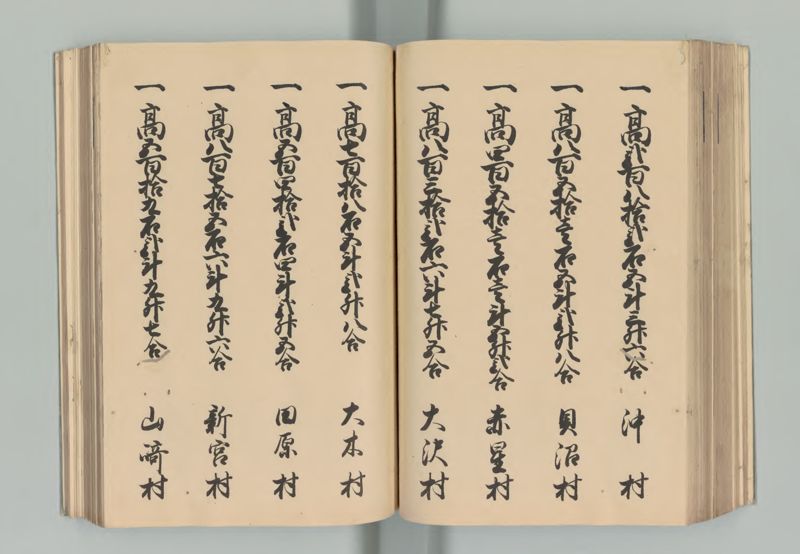 一高弐百八拾弐石五斗三升六合 沖村
一高八百五拾壱石五斗弐升八合 貝沼村
一高四百五拾壱石壱斗五升弐合 赤星村
一高八百三拾弐石六斗七升五合 大沢村
一高七百拾八石五斗弐升八合 大木村
一高五百四拾弐石四斗弐升五合 田原村
一高八百七拾五石六斗九升六合 新宮村
一高五百拾九石弐斗九升七合 山崎村